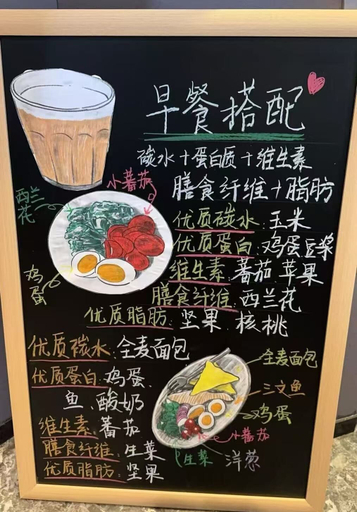 早餐搭配
碳水+蛋白质+维生素
膳食纤维+脂肪
小蕃茄
西兰花
鸡蛋
优质碳水:玉米
优质蛋白:鸡蛋豆浆
维生素:蕃茄 苹果
膳食纤维:西兰花
优质脂肪:坚果 核桃
优质碳水:全麦面包
优质蛋白:鸡蛋、
鱼、酸奶
维生素:蕃茄
膳食纤维:生菜
优质脂肪:坚果
全麦面包
三文鱼
鸡蛋
小蕃茄
生菜
洋葱